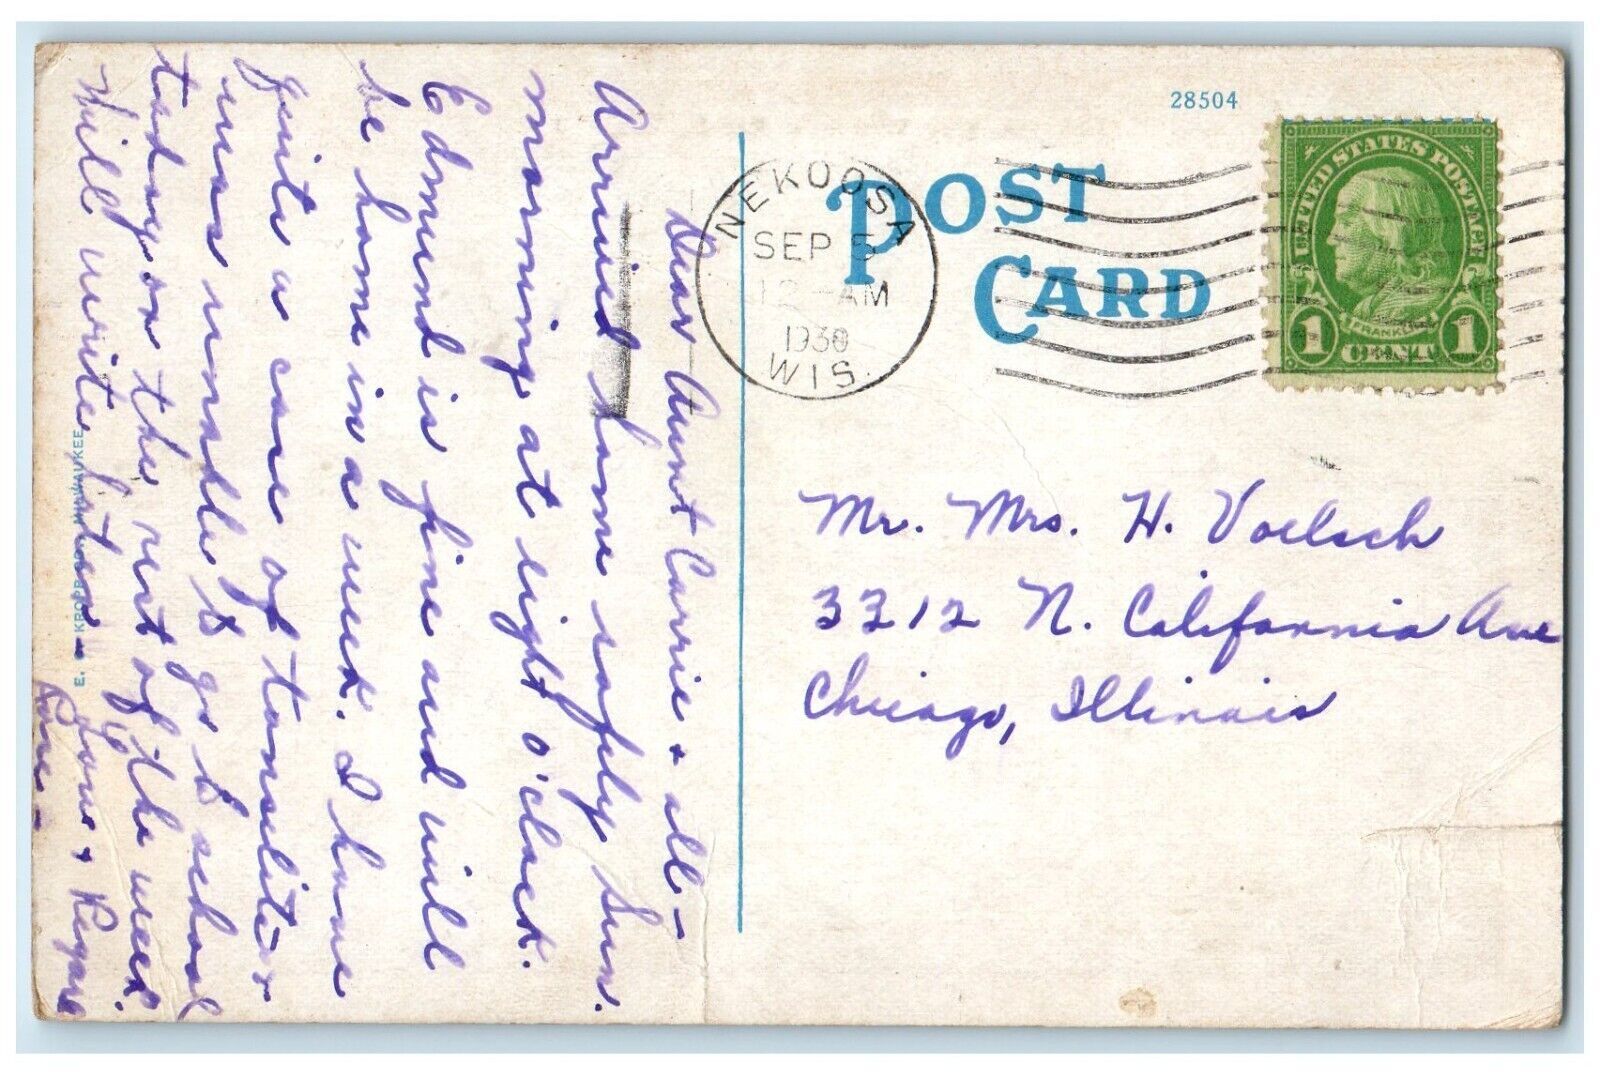 Dear Aunt Carrie + all -
Arrived home safely Sun.
morning at eight o'clock.
Edmund is fine and will
be home in a week. I have
quite a case of tonselites +
was unable to go to school
today or the rest of the week.
Will write later -
Love + Regards
28504
POST
CARD
NEKOOSA
SEP 5
12-AM
1930
WIS.
UNITED STATES POSTAGE
FRANKLIN
1 1
Mr. Mrs. H. Voelsch
3312 N. California Ave
Chicago, Illinois
E. C. KROPP CO. MILWAUKEE